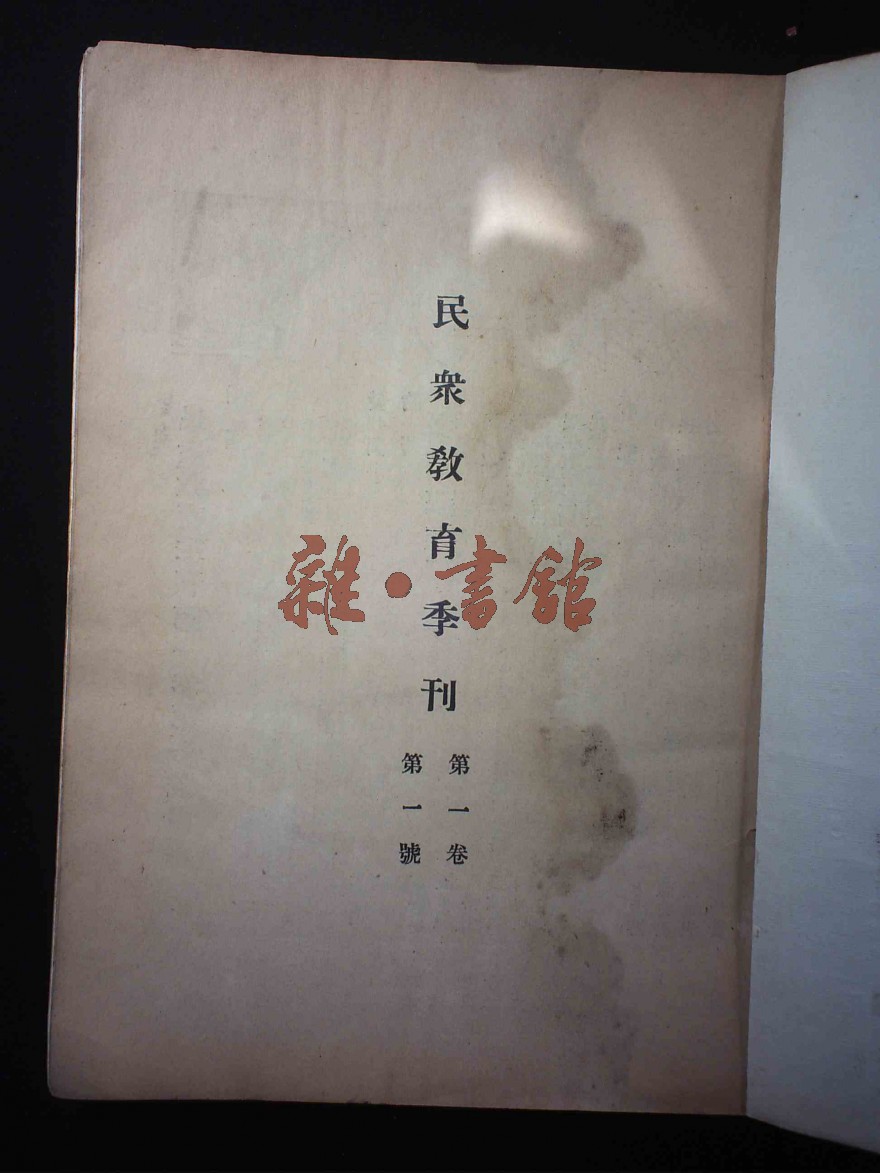 民衆敎育季刊
第一卷
第一號
雜·書館